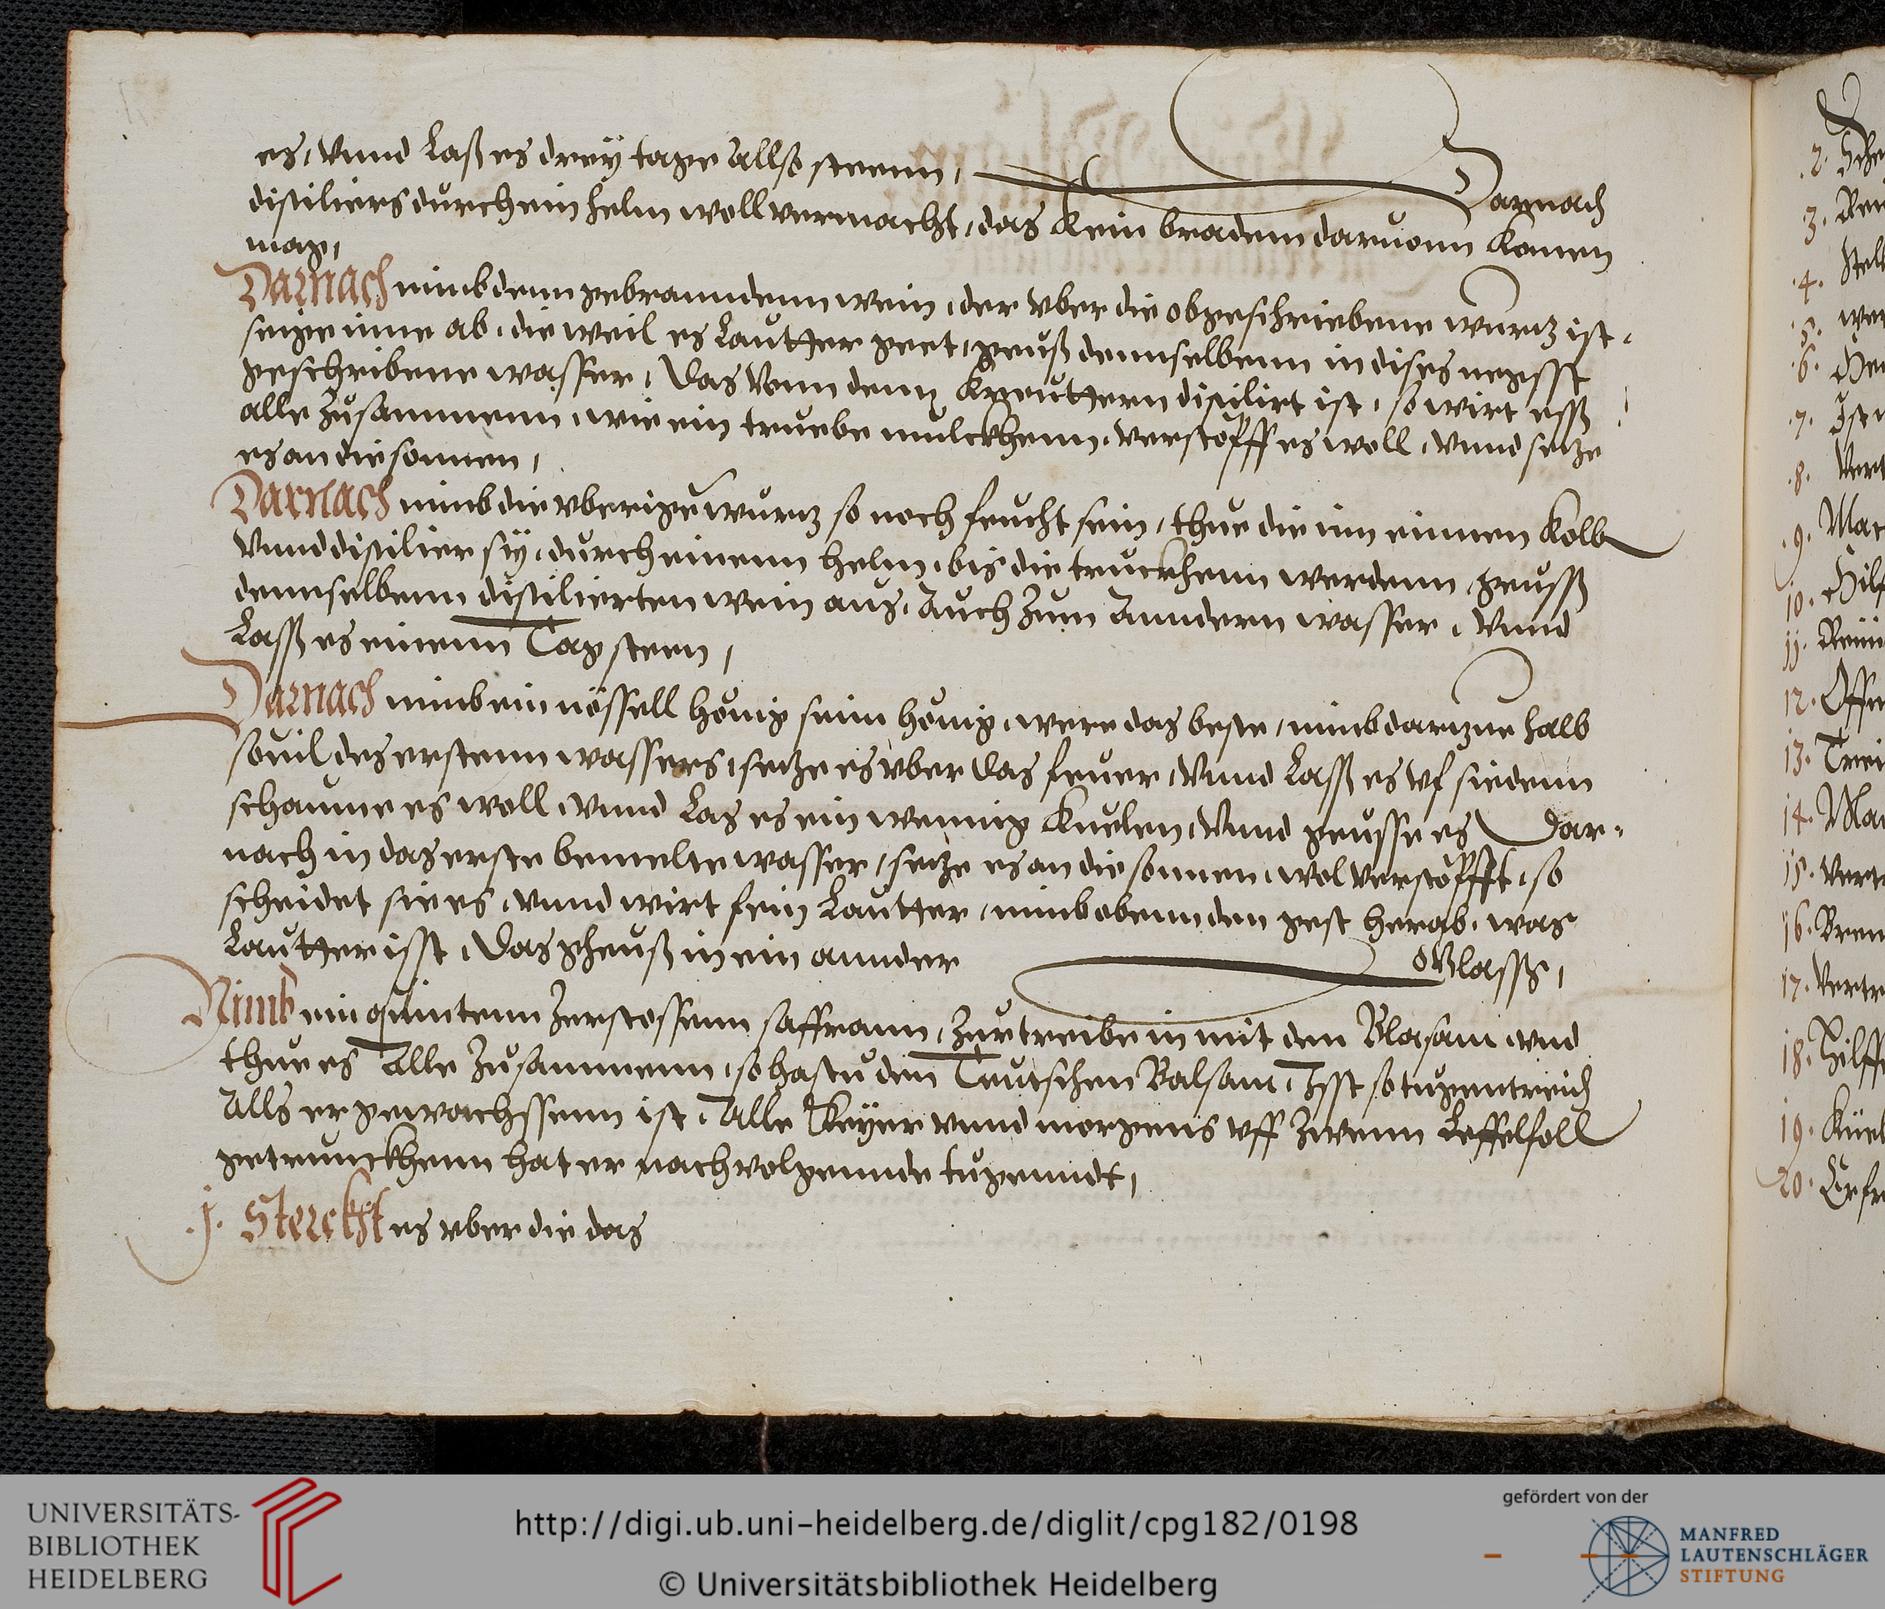 es, vnnd Laß es drey tage Allso steenn, Darnach
distiliers durch ein helm woll vermacht, das Kein bradem daruonn Komen
mag,
Darnach nimb denn gebranndenn wein, der vber die obgeschriebene wurtz ist
seige inne ab, die weil es Lautter geet, geuß dennselbenn in dises negsst
geschribene wasser, Das vonn denn Kreuttern distilirt ist, so wirt essß
alle Zusammenn, wie ein truebe mulckhenn, verstopff es woll, vnnd setze
es an die sonnen,
Darnach nimb die vberige wurtz so noch feucht sein, thue die inn einnen Kolb
Vnnd distilier sy, durch einenn helm, bis die truckhenn werdenn, geussß
dennselbenn distilierten wein aus, Auch Zum Anndern wasser, Vnnd
Lassß es einenn Tag steen,
Darnach nimb ein nössell honig seim honig, were das beste, nimb dartzue halb
souil des erstenn wassers, setze es vber das feuer, Vnnd Lassß es vf siedenn
schaume es woll, vnnd Las es ein wennig Kuelen, Vnnd geusse es Dar-
nach in das erste bemelte wasser, setze es an die sonnen, wol verstopfft, so
scheidet sie es, vnnd wirt fein Lautter, nimb obenn den gest herab, was
Lautter isst, Das gheuß in ein annder Glassß,
Nimb ein quintenn Zerstossenn saffrann, Zurtreibe in mit den Blasam vnd
thue es Alle Zusammenn, so hastu den Teutschen Balsam, Isst so tugentreich
Alls er gewachssenn ist, Alle Keyer vnnd morgens vff Zwenn Leffelfoll
getrunckhenn hat er nachvolgennde tugenndt,
.j. Sterckht es vber die das
.2.
3.
.4.
.5.
.6.
.7.
.8.
.9.
10.
11.
12.
13.
14.
15.
16.
17.
18.
19.
20.
UNIVERSITÄTS-
BIBLIOTHEK
HEIDELBERG
http://digi.ub.uni-heidelberg.de/diglit/cpg182/0198
© Universitätsbibliothek Heidelberg
gefördert von der
MANFRED
LAUTENSCHLÄGER
STIFTUNG